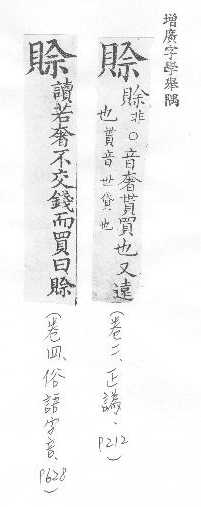 增廣字學舉隅
賒
賖非○音奢貰買也又遠
也貰音世貸也
(卷二、正譌、P212)
賒
讀若奢不交錢而買曰賒
(卷四、俗語字音、P628)